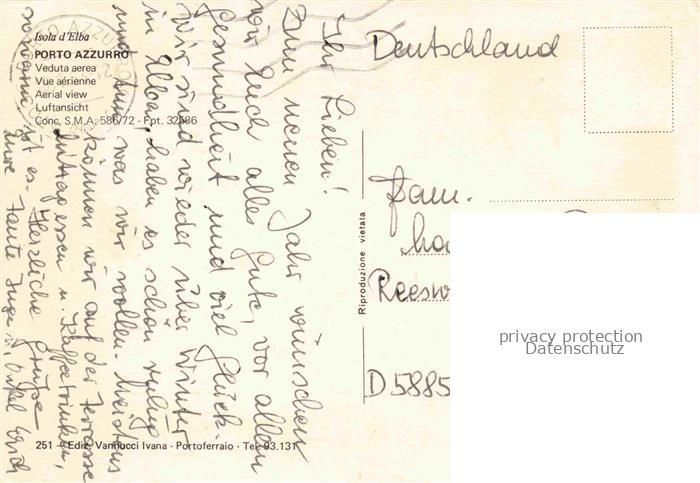 Isola d'Elba
PORTO AZZURRO
Veduta aerea
Vue aérienne
Aerial view
Luftansicht
Conc, S.M.A. 586/72 - Fpt. 32586
Ihr Lieben!
Zum neuen Jahr wünschen
wir Euch alles Gute, vor allem
Gesundheit und viel Glück.
Wir sind wieder über Winter
in Elba, haben es schön ruhig
und tun was wir wollen. Meistens
können wir auf der Terrasse
Mittagessen u. Kaffeetrinken,
ist es. Herzliche Grüße
Eure Tante Inge u. Onkel
Deutschland
Fam.
D 5885
Riproduzione vietata
251 - Ediz. Vannucci Ivana - Portoferraio - Tel. 93.131
privacy protection
Datenschutz